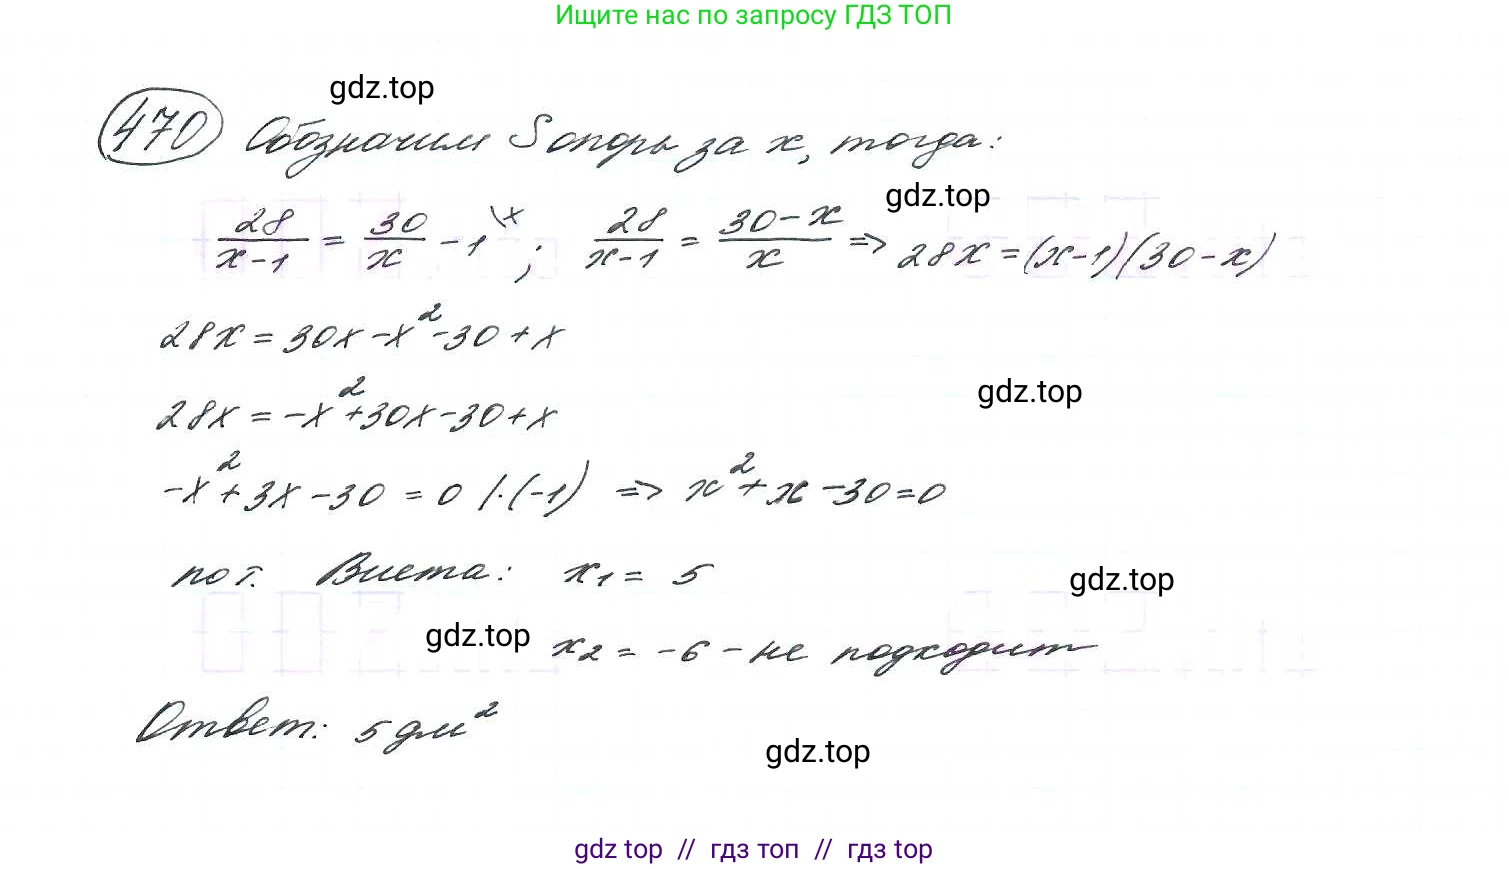 Ищите нас по запросу ГДЗ ТОП
gdz.top
470 Обозначим S опоры за x, тогда:
gdz.top
28/(x-1) = 30/x - 1 \x ; 28/(x-1) = (30-x)/x => 28x = (x-1)(30-x)
28x = 30x - x² - 30 + x
28x = -x² + 30x - 30 + x
gdz.top
-x² + 3x - 30 = 0 /·(-1) => x² + x - 30 = 0
по т. Виета: x₁ = 5
gdz.top
gdz.top
x₂ = -6 - не подходит
Ответ: 5 дм²
gdz.top
gdz top // гдз топ // гдз top